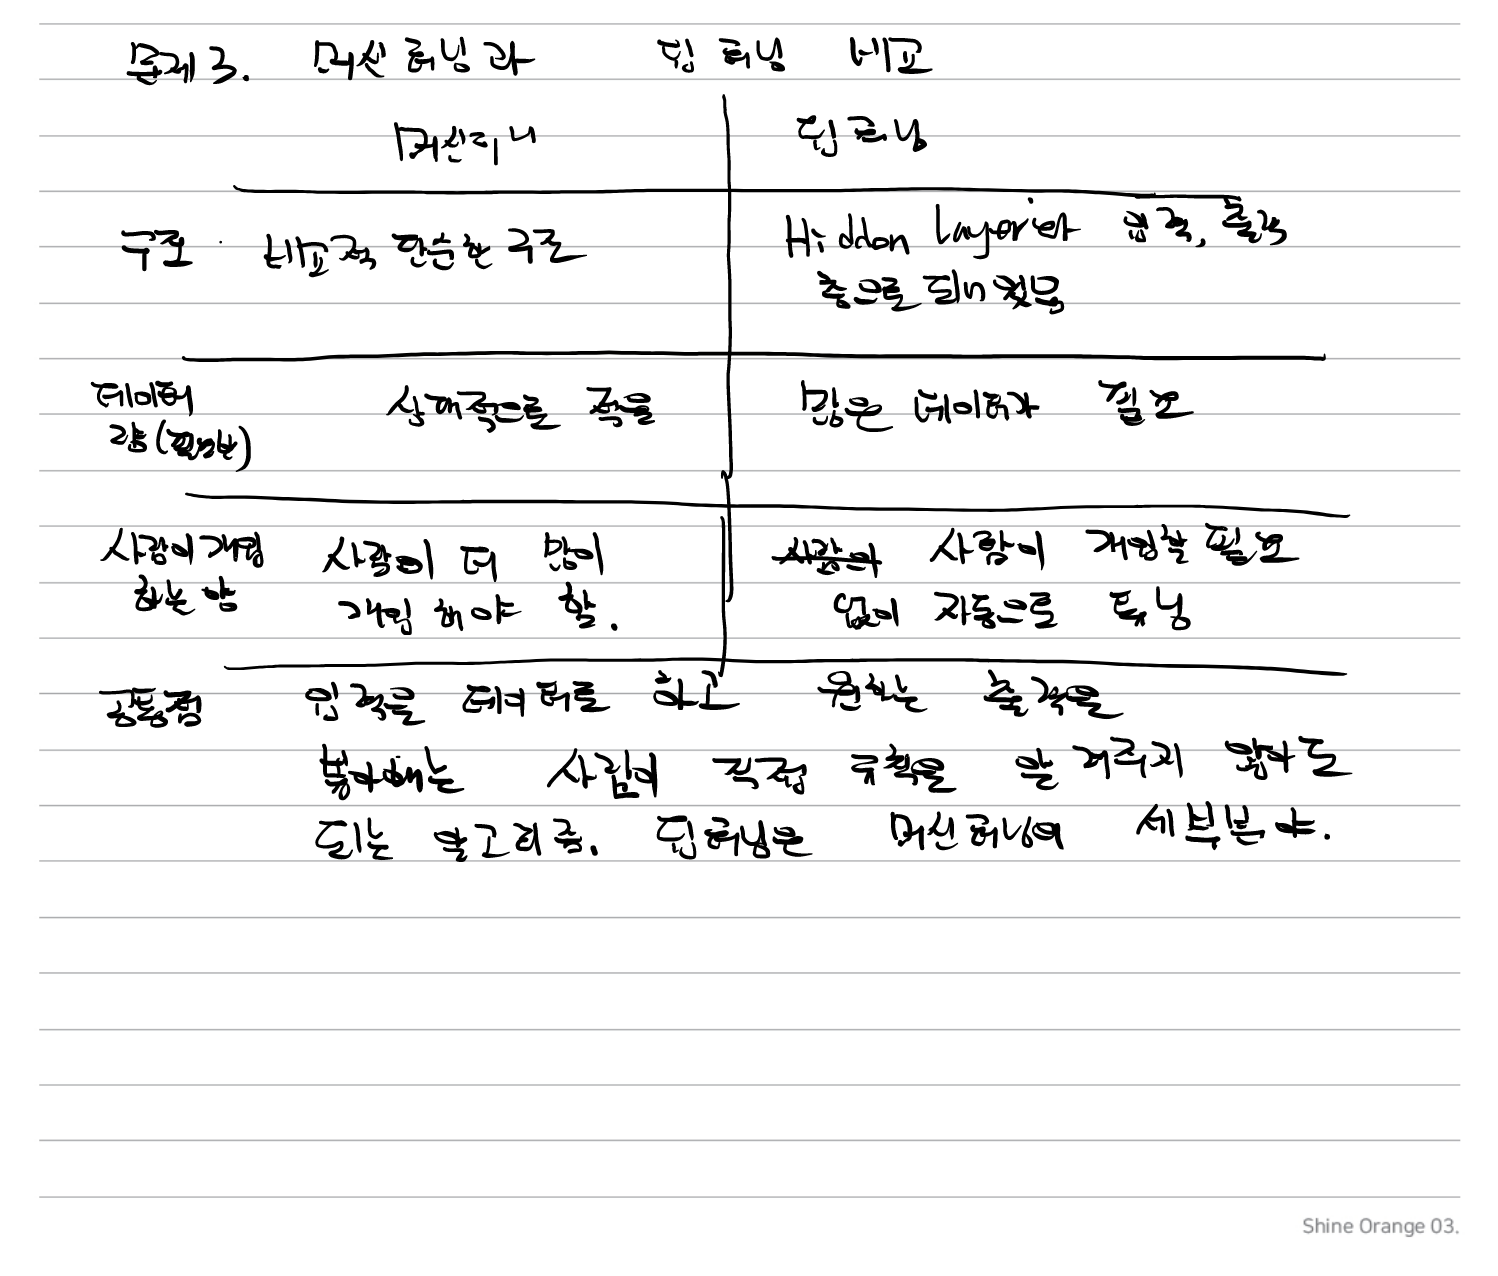 문제 3. 머신 러닝과 딥 러닝 비교
머신러닝 딥러닝
구조 비교적 단순한 구조 Hidden layer와 입력, 출력
층으로 되어 있음
데이터 상대적으로 적음 많은 데이터가 필요
량(필요한)
사람이 개입 사람이 더 많이 사람이 사람이 개입할 필요
하는 양 개입 해야 함. 없이 자동으로 튜닝
공통점 입력을 데이터로 하고 원하는 출력을
뽑아내는 사람이 직접 규칙을 알려주지 않아도
되는 알고리즘. 딥러닝은 머신러닝의 세부분야.
Shine Orange 03.